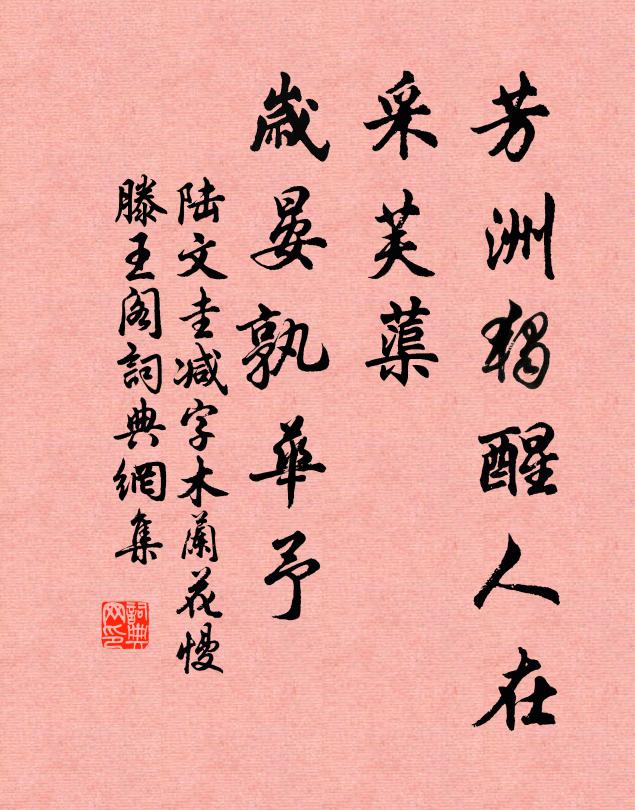 芳洲獨醒人在
采芙蕖
歲晏孰華予
陆文圭减字木蘭花慢
滕王阁詞典網集
詞典網印